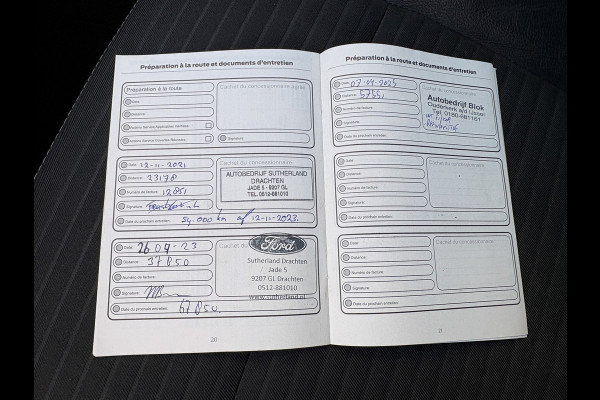 Préparation à la route et documents d'entretien
Préparation à la route:
Cachet du concessionnaire agréé
Date:
Distance:
Signature:
Date: 12-11-2021
Cachet du concessionnaire
Distance: 23178
AUTOBEDRIJF SUTHERLAND
DRACHTEN
JADE 5 - 9207 GL
TEL. 0512-881010
Numéro de facture: 12851
Signature:
Date du prochain entretien: 54.000 km of 12-11-2023.
Date: 26 07-23
Cachet du
Ford
Distance: 37850
Sutherland Drachten
Jade 5
9207 GL Drachten
0512-881010
www.sutherland.nl
Numéro de facture:
Signature:
Date du prochain entretien: 67850.
20
Préparation à la route et documents d'entretien
Date: 07-04-2025
Cachet du concessionnaire
Distance: 57551
Autobedrijf Blok
Ouderkerk a/d IJssel
Tel. 0180-681161
Numéro de facture:
Signature:
Date du prochain entretien:
Date:
Cachet du concessionnaire
Distance:
Numéro de facture:
Signature:
Date du prochain entretien:
Date:
Cachet du concessionnaire
Distance:
Numéro de facture:
Signature:
Date du prochain entretien:
21